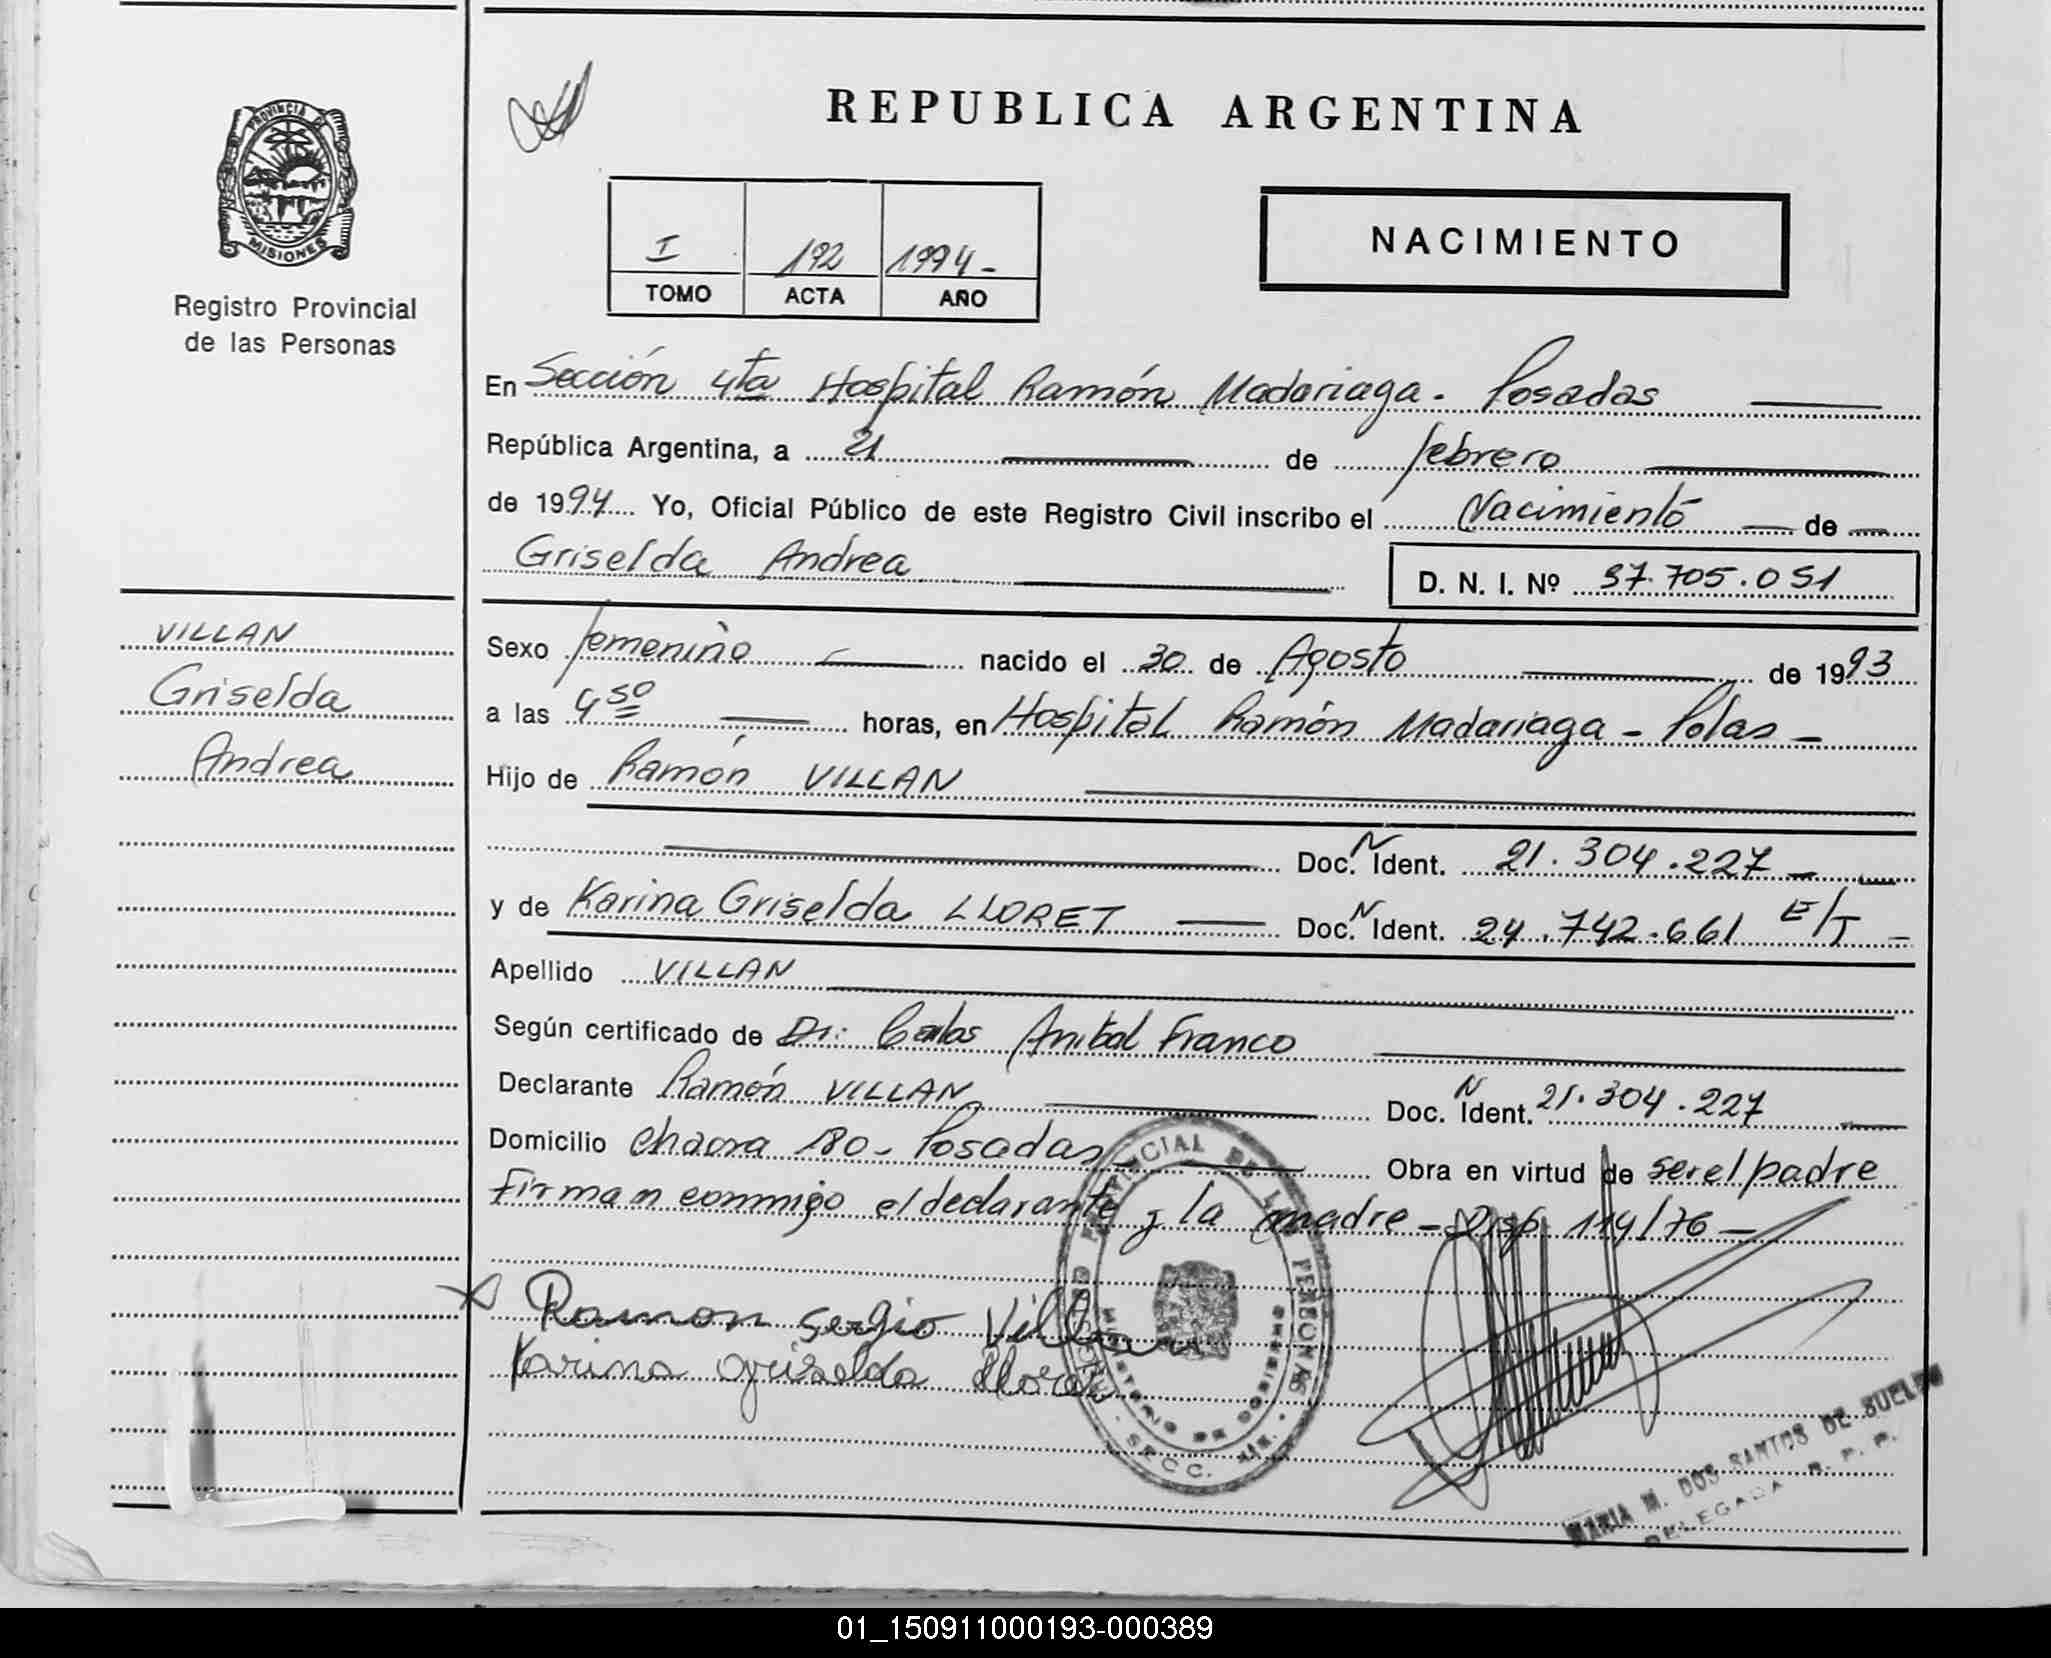 REPUBLICA ARGENTINA
PROVINCIA DE
MISIONES
Registro Provincial
de las Personas
I 192 1994-
TOMO ACTA AÑO
NACIMIENTO
En Sección 4ta Hospital Ramón Madariaga. Posadas
República Argentina, a 21 de febrero
de 1994 Yo, Oficial Público de este Registro Civil inscribo el Nacimiento de
Griselda Andrea
D. N. I. Nº 37.705.051
VILLAN
Griselda
Andrea
Sexo femenino nacido el 30 de Agosto de 1993
a las 4 50 horas, en Hospital Ramón Madariaga - Pdas -
Hijo de Ramón VILLAN
Doc. N Ident. 21.304.227 -
y de Karina Griselda LLORET Doc. N Ident. 24.742.661 E/T -
Apellido VILLAN
Según certificado de Dr: Carlos Anibal Franco
Declarante Ramón VILLAN Doc. N Ident. 21.304.227
Domicilio chacra 180- Posadas Obra en virtud de ser el padre
Firman conmigo el declarante y la madre - Disp 114/76 -
Ramon sergio Villan
Karina griselda lloret
PROVINCIAL DE LAS PERSONAS
MINISTERIO DE GOBIERNO
MARIA M. DOS SANTOS DE BUELDO
DELEGADA R. P. P.
01_150911000193-000389